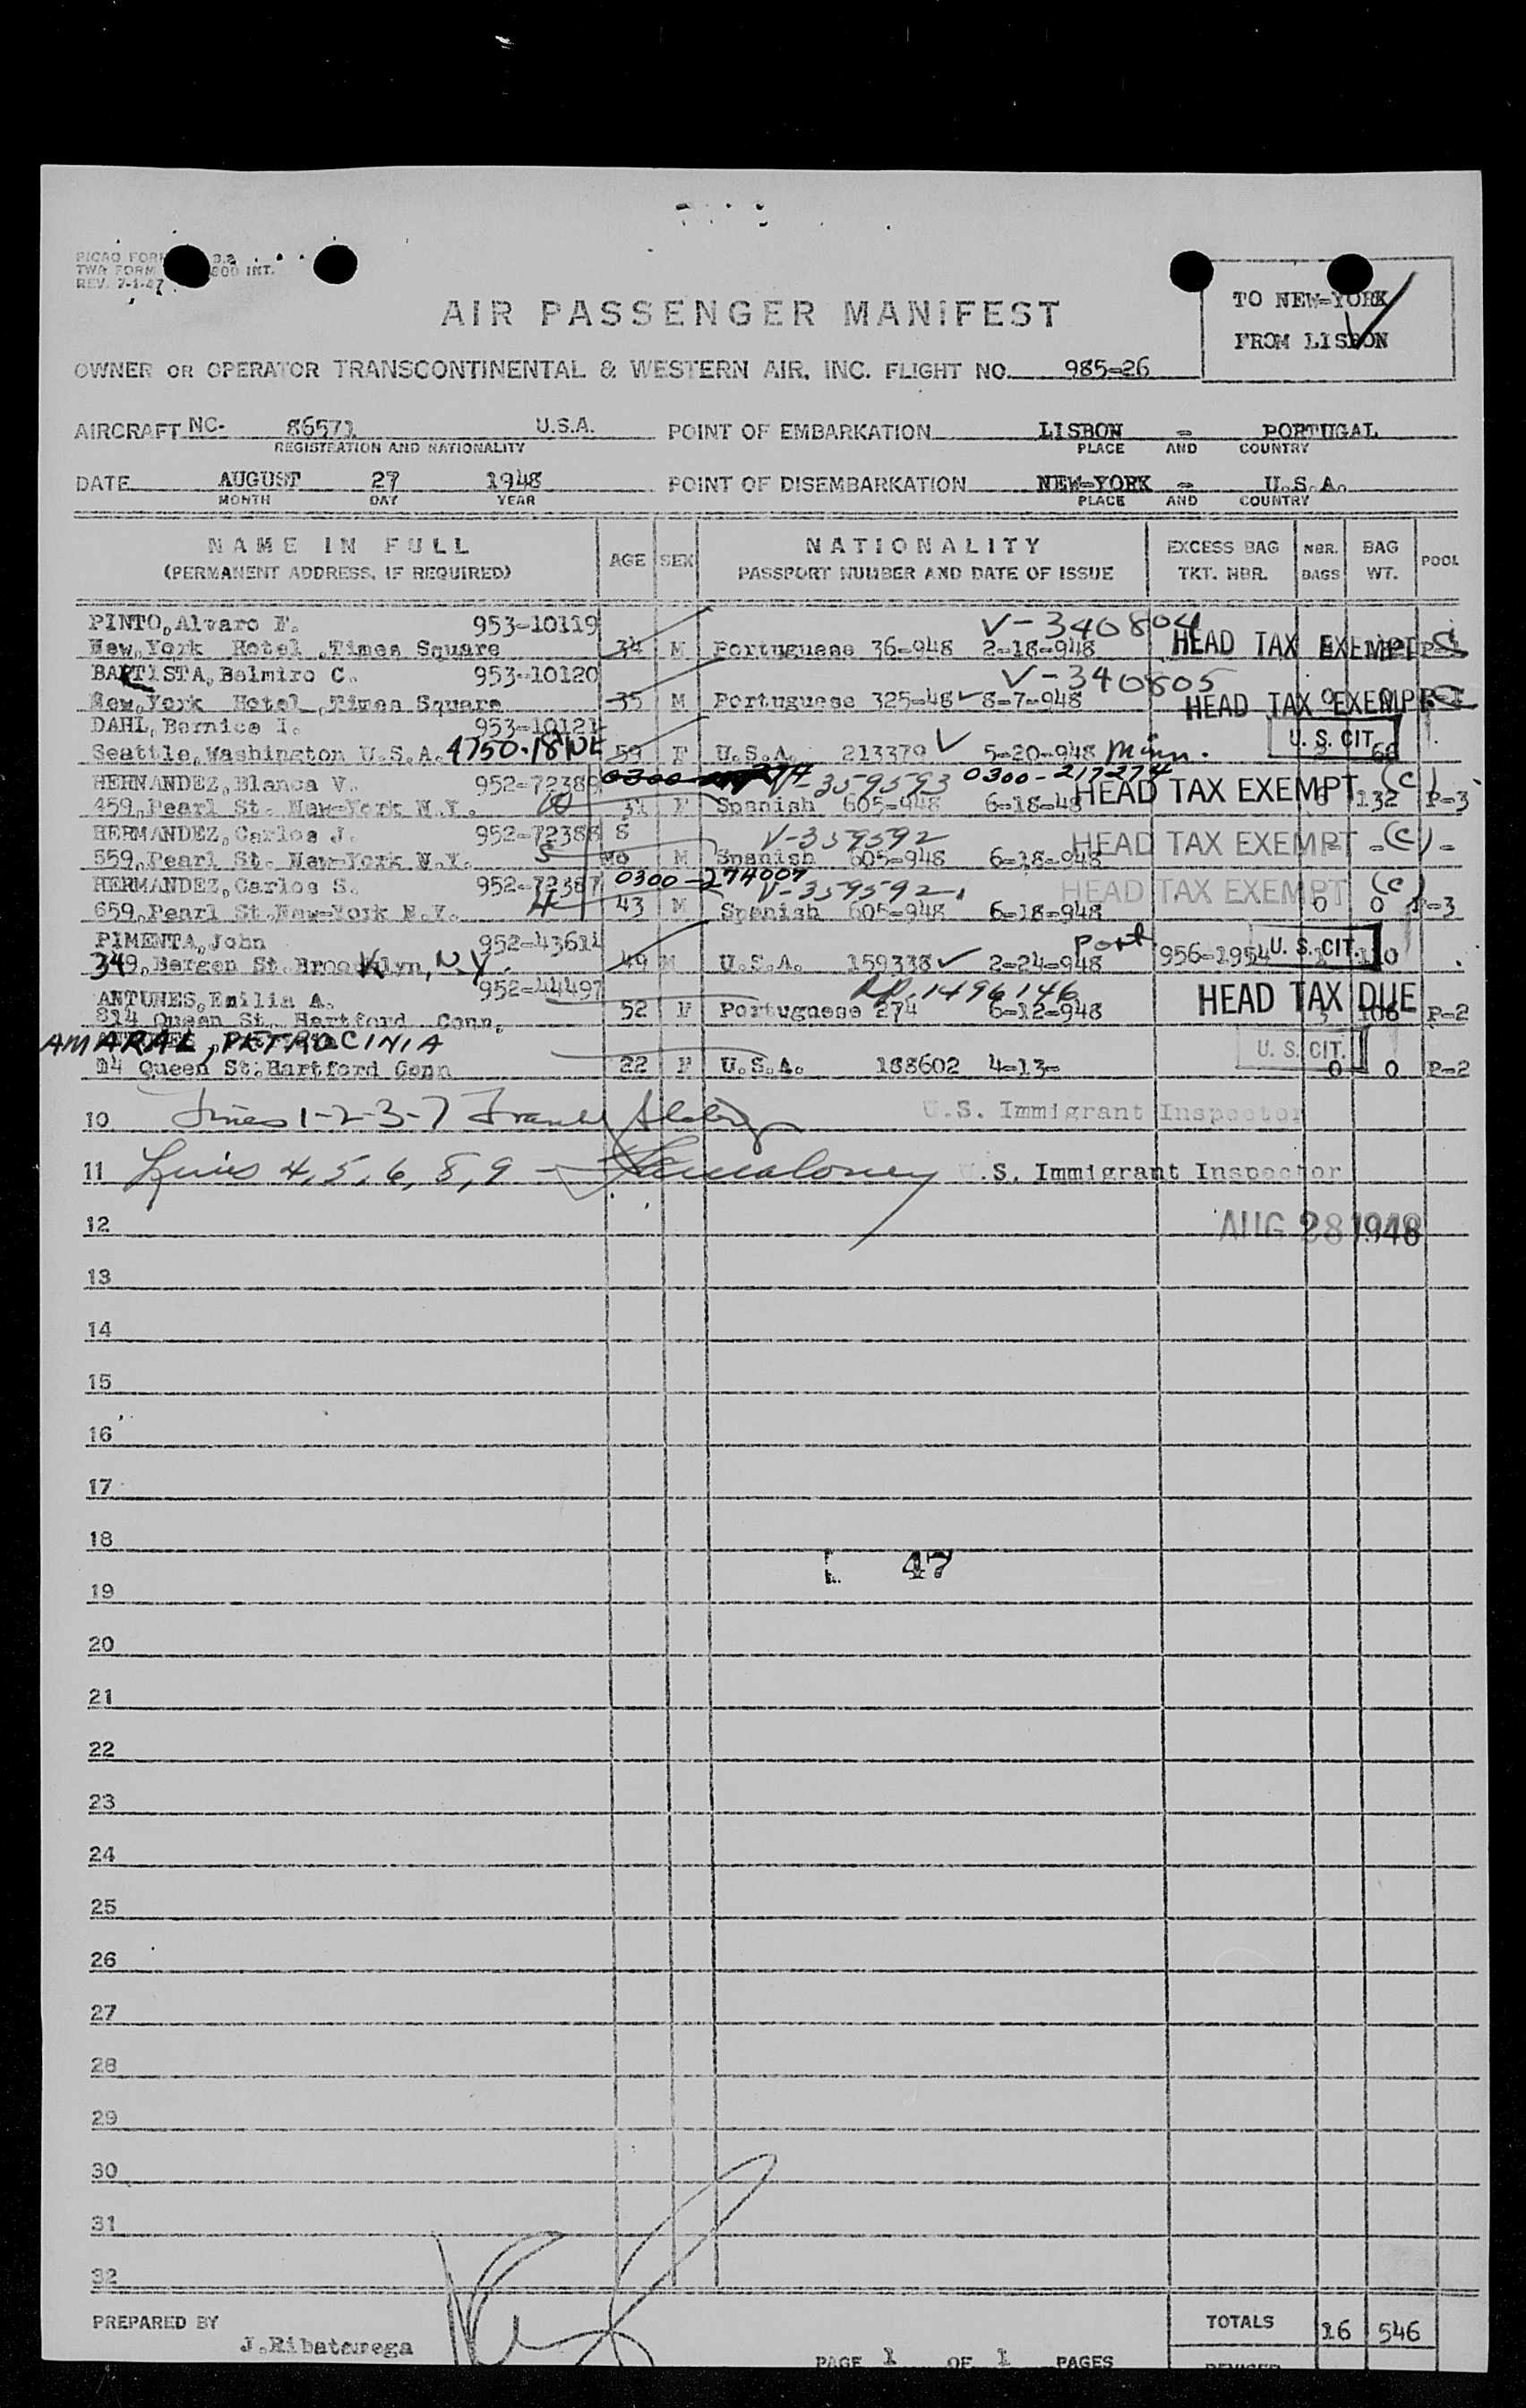 PICAO FORM 3.2
TWA FORM 800 INT.
REV. 7-1-47
TO NEW-YORK
FROM LISBON
AIR PASSENGER MANIFEST
OWNER OR OPERATOR TRANSCONTINENTAL & WESTERN AIR, INC. FLIGHT NO. 985-26
AIRCRAFT NC- 86571 U.S.A. POINT OF EMBARKATION LISBON - PORTUGAL
REGISTRATION AND NATIONALITY PLACE AND COUNTRY
DATE AUGUST 27 1948 POINT OF DISEMBARKATION NEW-YORK - U.S.A.
MONTH DAY YEAR PLACE AND COUNTRY
NAME IN FULL AGE SEX NATIONALITY EXCESS BAG NBR. BAG POOL
(PERMANENT ADDRESS, IF REQUIRED) PASSPORT NUMBER AND DATE OF ISSUE TKT. NBR. BAGS WT.
PINTO, Alvaro F. 953-10119 V-340804
New, York Hotel, Times Square 34 M Portuguese 36-948 2-18-948 HEAD TAX EXEMPT
BAPTISTA, Belmiro C. 953-10120 V-340805
New, York Hotel, Times Square 35 M Portuguese 325-48 8-7-948 HEAD TAX EXEMPT
DAHL, Bernice I. 953-10121 U. S. CIT.
Seattle, Washington U.S.A. 4750-18 NE 59 F U.S.A. 213379 5-20-948 Minn. 66
HERNANDEZ, Blanca V. 952-72389 0300 V-359593 0300-217274
459, Pearl St. New-York N.Y. 31 F Spanish 605-948 6-18-48 HEAD TAX EXEMPT (C) 132 P-3
HERMANDEZ, Carlos J. 952-72388 8 V-359592
559, Pearl St. New-York N.Y. 5 Mo M Spanish 605-948 6-18-948 HEAD TAX EXEMPT (C) -
HERMANDEZ, Carlos S. 952-72387 0300-274007 V-359592
659, Pearl St. New-York N.Y. H 43 M Spanish 605-948 6-18-948 HEAD TAX EXEMPT (C) 0 0 P-3
PIMENTA, John 952-43614 Port.
349, Bergen St. Brooklyn, N.Y. 49 M U.S.A. 159338 2-24-948 956-1954 U. S. CIT.
ANTUNES, Emilia A. 952-44497 RP-1496146
814 Queen St. Hartford Conn. 52 F Portuguese 274 6-12-948 HEAD TAX DUE 106 P-2
AMARAL, PETROCINIA U. S. CIT.
14 Queen St. Hartford Conn 22 F U.S.A. 188602 4-13- 0 0 P-2
10 Lines 1-2-3-7 Frank U.S. Immigrant Inspector
11 Lines 4, 5, 6, 8, 9 - U.S. Immigrant Inspector
12 AUG 28 1948
13
14
15
16
17
18
47
19
20
21
22
23
24
25
26
27
28
29
30
31
32
PREPARED BY TOTALS 16 546
J. Ribatarega
PAGE 1 OF 1 PAGES